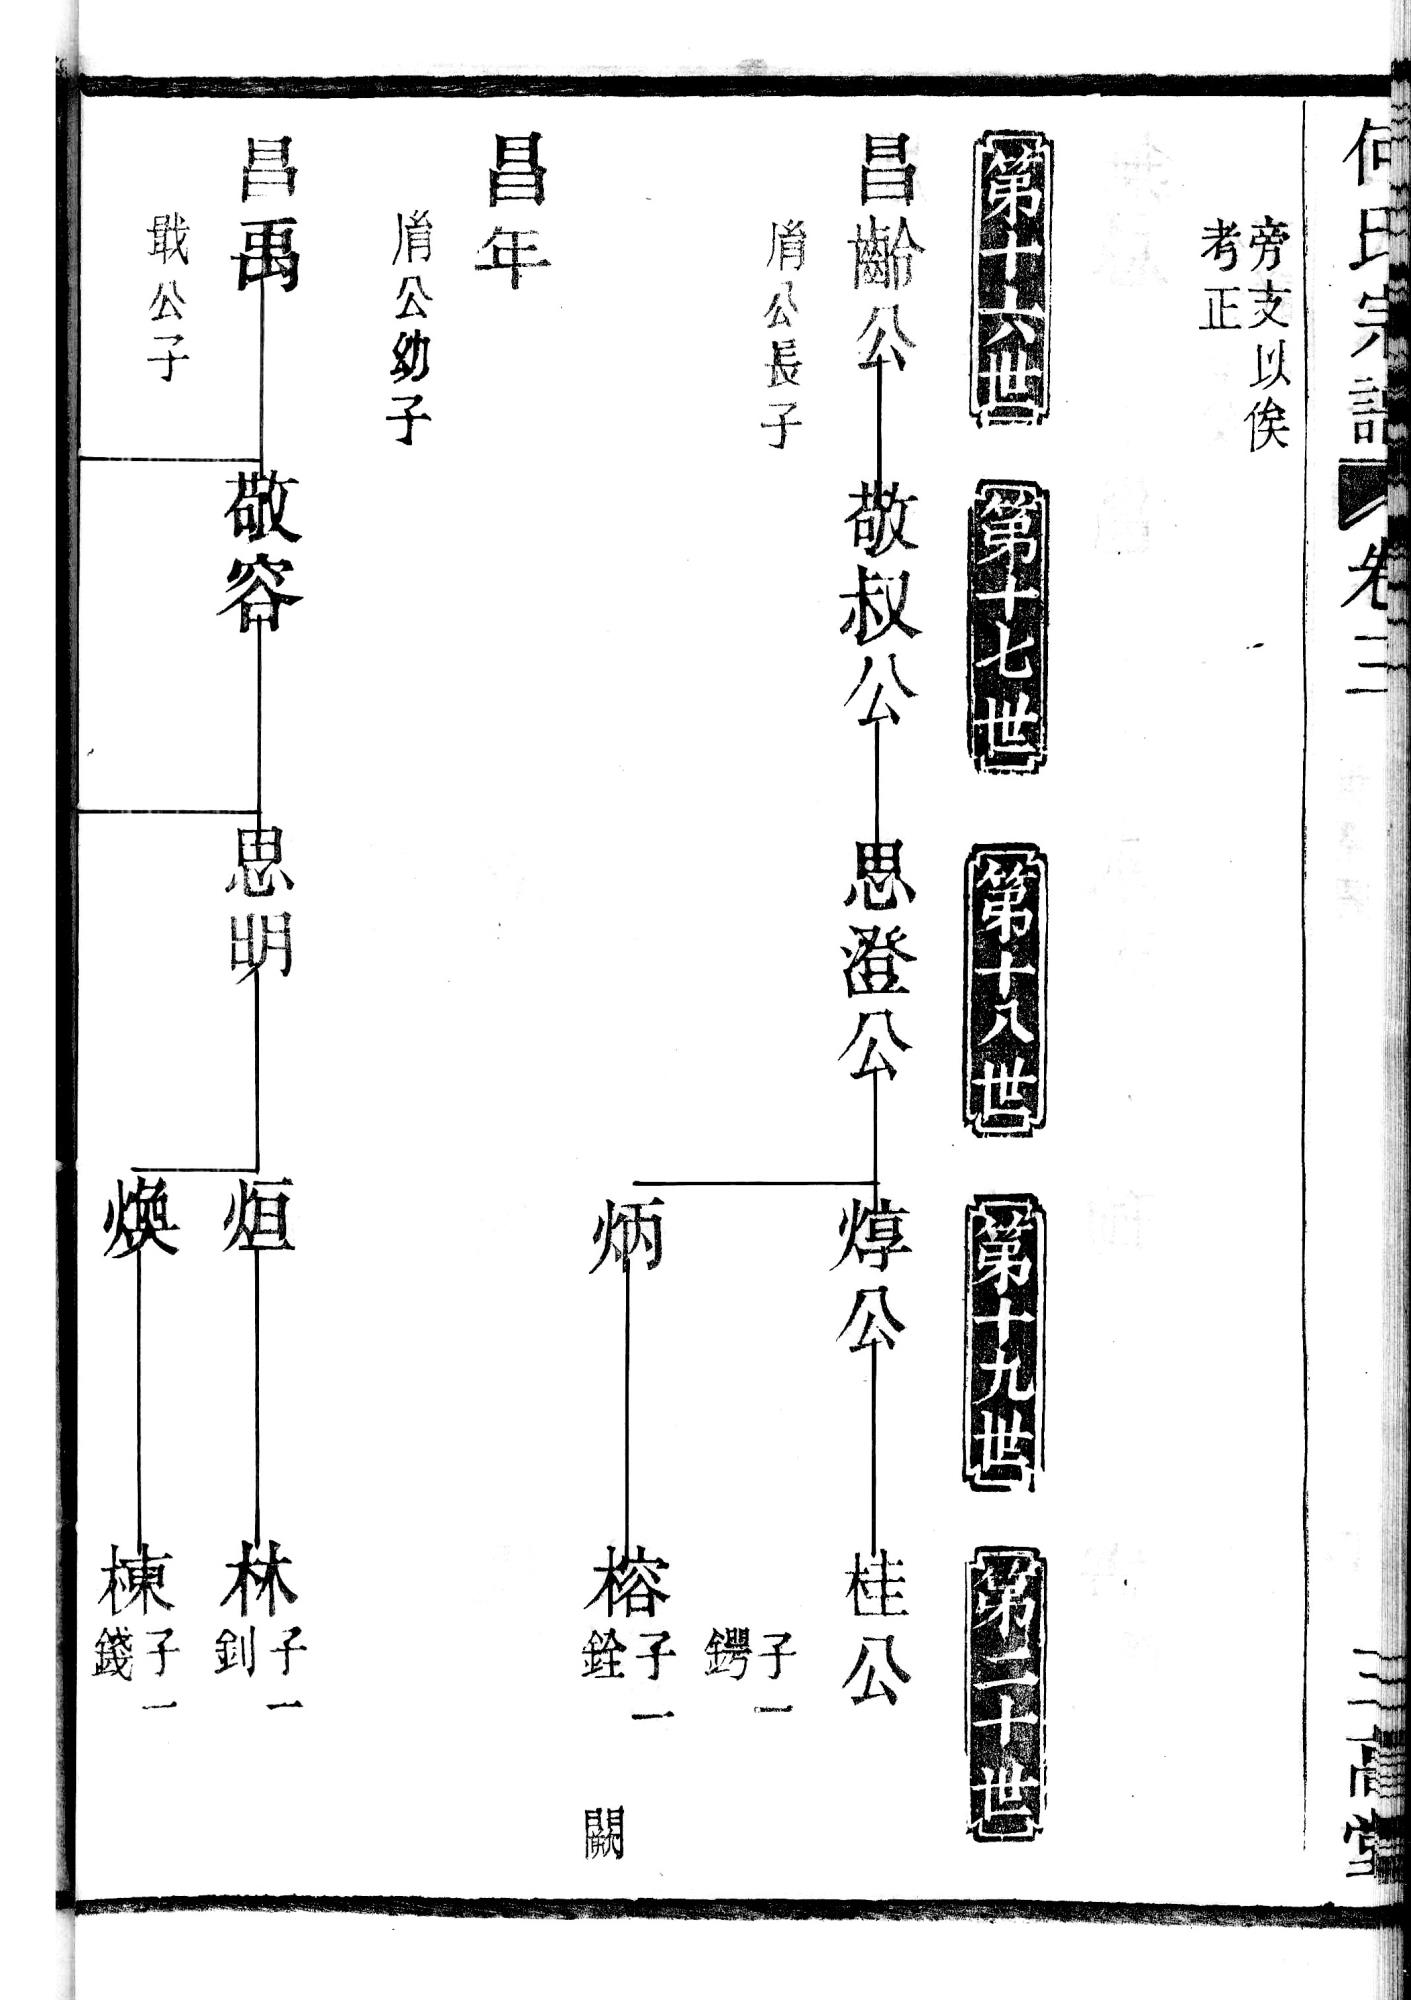 何氏宗譜
卷三
三高堂
旁支以俟
考正
第十六世
第十七世
第十八世
第十九世
第二十世
昌齡公
敬叔公
思澄公
焞公
桂公
公長子
子一
鍔
炳
榕
子一
銓
闕
昌年
公幼子
昌禹
敬容
思明
烜
林
子一
釗
戢公子
煥
棟
子一
錢